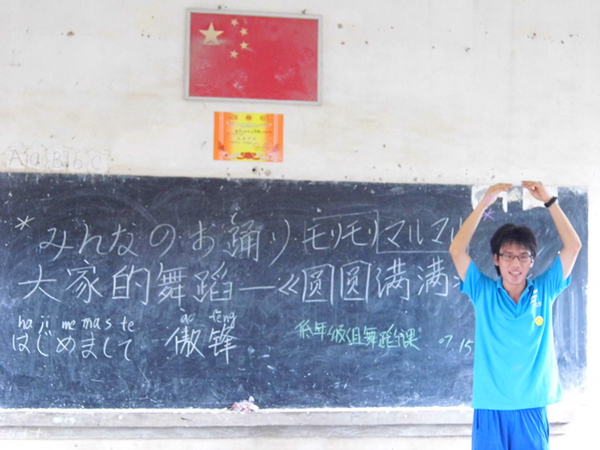 Aa Bb Cc
*みんなのお踊り モリモリマルマル*
大家的舞蹈—《圆圆满满
ha ji me ma s te
はじめまして
ao feng
傲锋
低年级组舞蹈课 07 15